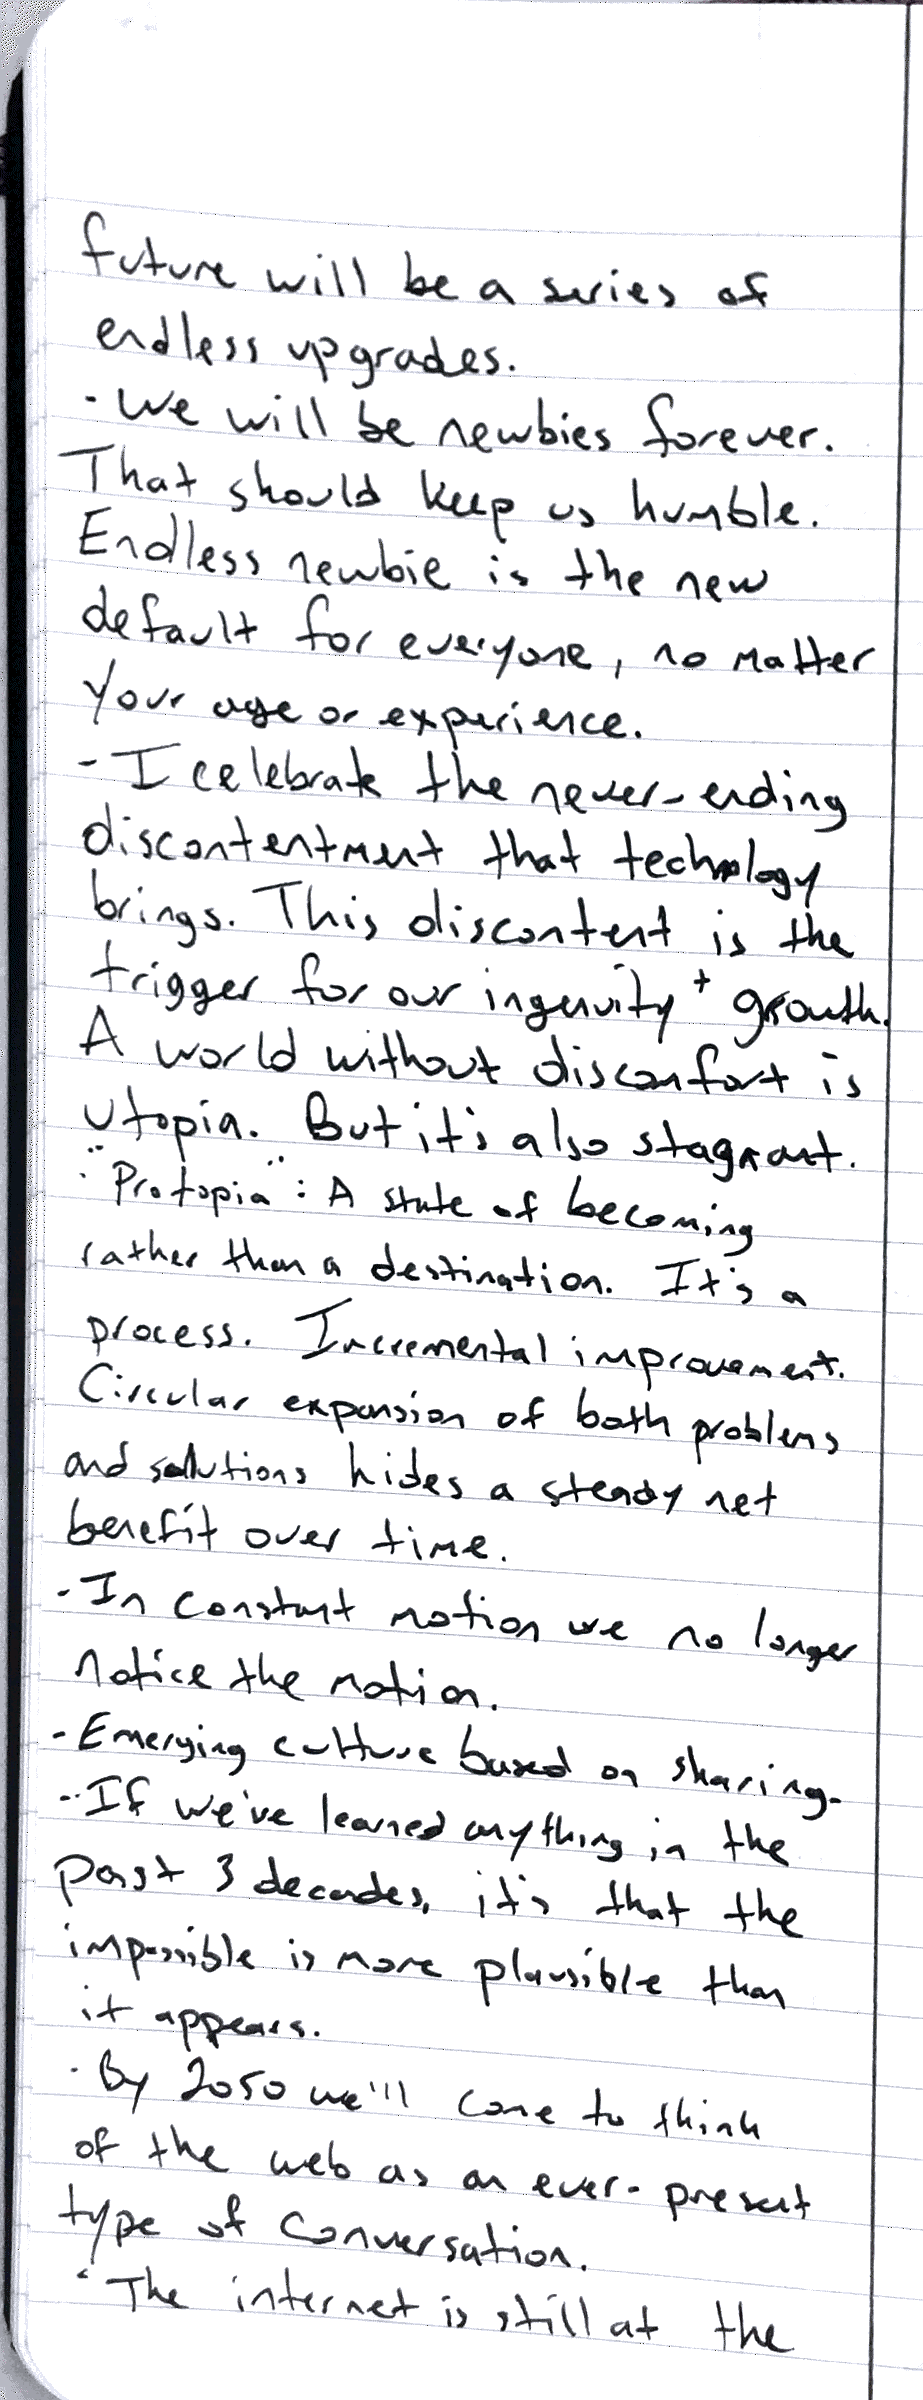 future will be a series of
endless upgrades.
- We will be newbies forever.
That should keep us humble.
Endless newbie is the new
default for everyone, no matter
your age or experience.
- I celebrate the never-ending
discontentment that technology
brings. This discontent is the
trigger for our ingenuity + growth.
A world without discomfort is
utopia. But it's also stagnant.
- "Protopia": A state of becoming
rather than a destination. It's a
process. Incremental improvement.
Circular expansion of both problems
and solutions hides a steady net
benefit over time.
- In constant motion we no longer
notice the motion.
- Emerging culture based on sharing.
- If we've learned anything in the
past 3 decades, it's that the
impossible is more plausible than
it appears.
- By 2050 we'll come to think
of the web as an ever-present
type of conversation.
- The internet is still at the